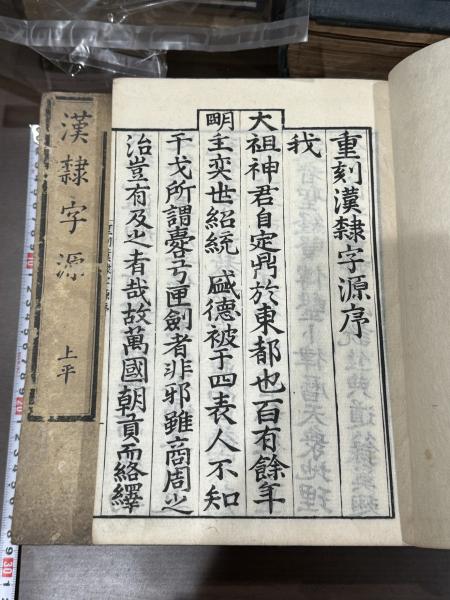 重刻漢隸字源序
我
大祖神君自定鼎於東都也百有餘年
明主奕世紹統盛德被于四表人不知
干戈所謂櫜弓匣劍者非邪雖商周之
治豈有及之者哉故萬國朝貢而絡繹
漢隸字源
上平